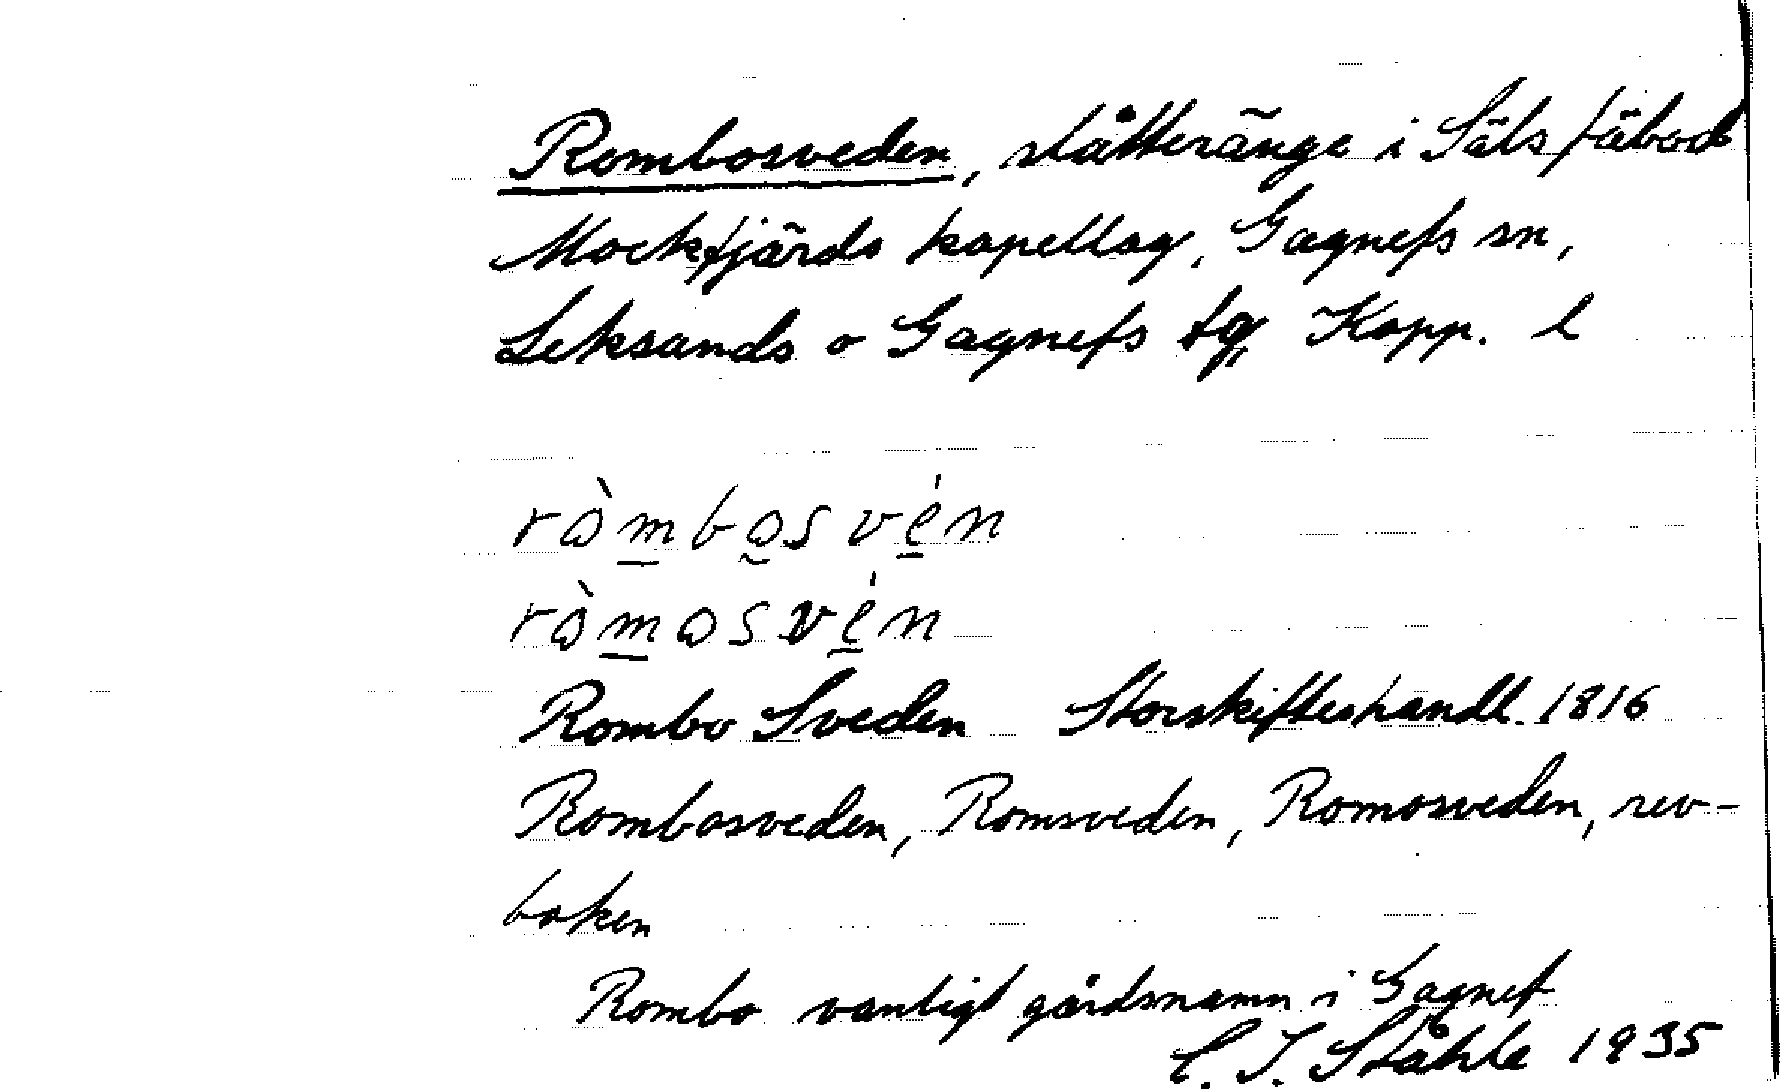 Rombosveden, slåtteränge i Säls fäbod
Mockfjärds kapellag, Gagnefs sn,
Leksands o Gagnefs tg Kopp. l
ròmbosvén
ròmosvén
Rombo Sveden Storskifteshandl. 1816
Rombosveden, Romsveden, Romosveden, rev-
boken
Rombo vanligt gårdsnamn i Gagnef
C. I. Ståhle 1935